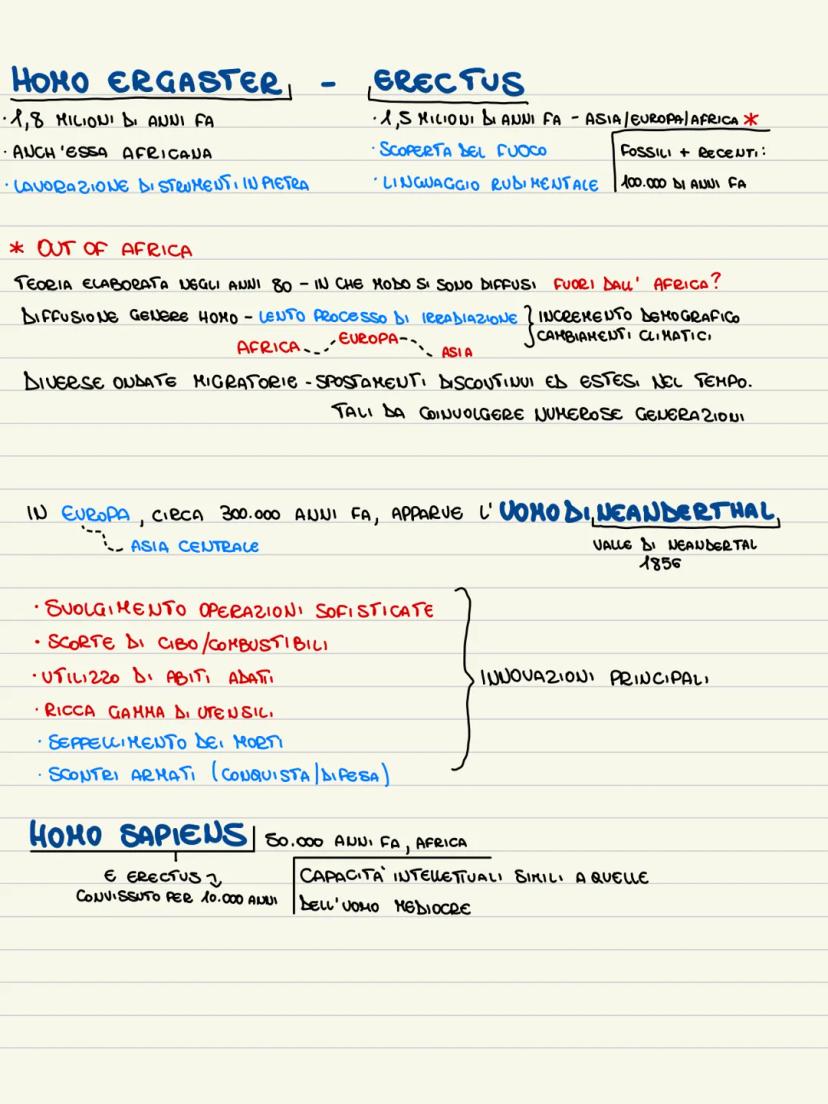 HOMO ERGASTER - ERECTUS
· 1,8 MILIONI DI ANNI FA
· 1,5 MILIONI DI ANNI FA - ASIA/EUROPA/AFRICA *
· ANCH'ESSA AFRICANA
· SCOPERTA DEL FUOCO
FOSSILI + RECENTI:
· LAVORAZIONE DI STRUMENTI IN PIETRA
· LINGUAGGIO RUDIMENTALE
100.000 DI ANNI FA
* OUT OF AFRICA
TEORIA ELABORATA NEGLI ANNI 80 - IN CHE MODO SI SONO DIFFUSI FUORI DALL' AFRICA?
DIFFUSIONE GENERE HOMO - LENTO PROCESSO DI IRRADIAZIONE } INCREMENTO DEMOGRAFICO
CAMBIAMENTI CLIMATICI
AFRICA EUROPA ASIA
DIVERSE ONDATE MIGRATORIE - SPOSTAMENTI DISCONTINUI ED ESTESI NEL TEMPO.
TALI DA COINVOLGERE NUMEROSE GENERAZIONI
IN EUROPA, CIRCA 300.000 ANNI FA, APPARVE L'UOMO DI NEANDERTHAL
ASIA CENTRALE
VALLE DI NEANDERTAL
1856
· SVOLGIMENTO OPERAZIONI SOFISTICATE
· SCORTE DI CIBO/COMBUSTIBILI
· UTILIZZO DI ABITI ADATI
INNOVAZIONI PRINCIPALI
· RICCA GAMMA DI UTENSILI
· SEPPELLIMENTO DEI MORTI
· SCONTRI ARMATI (CONQUISTA/DIFESA)
HOMO SAPIENS 50.000 ANNI FA, AFRICA
E ERECTUS
CONVISSUTO PER 10.000 ANNI
CAPACITÀ INTELLETTUALI SIMILI A QUELLE
DELL'UOMO MEDIOCRE